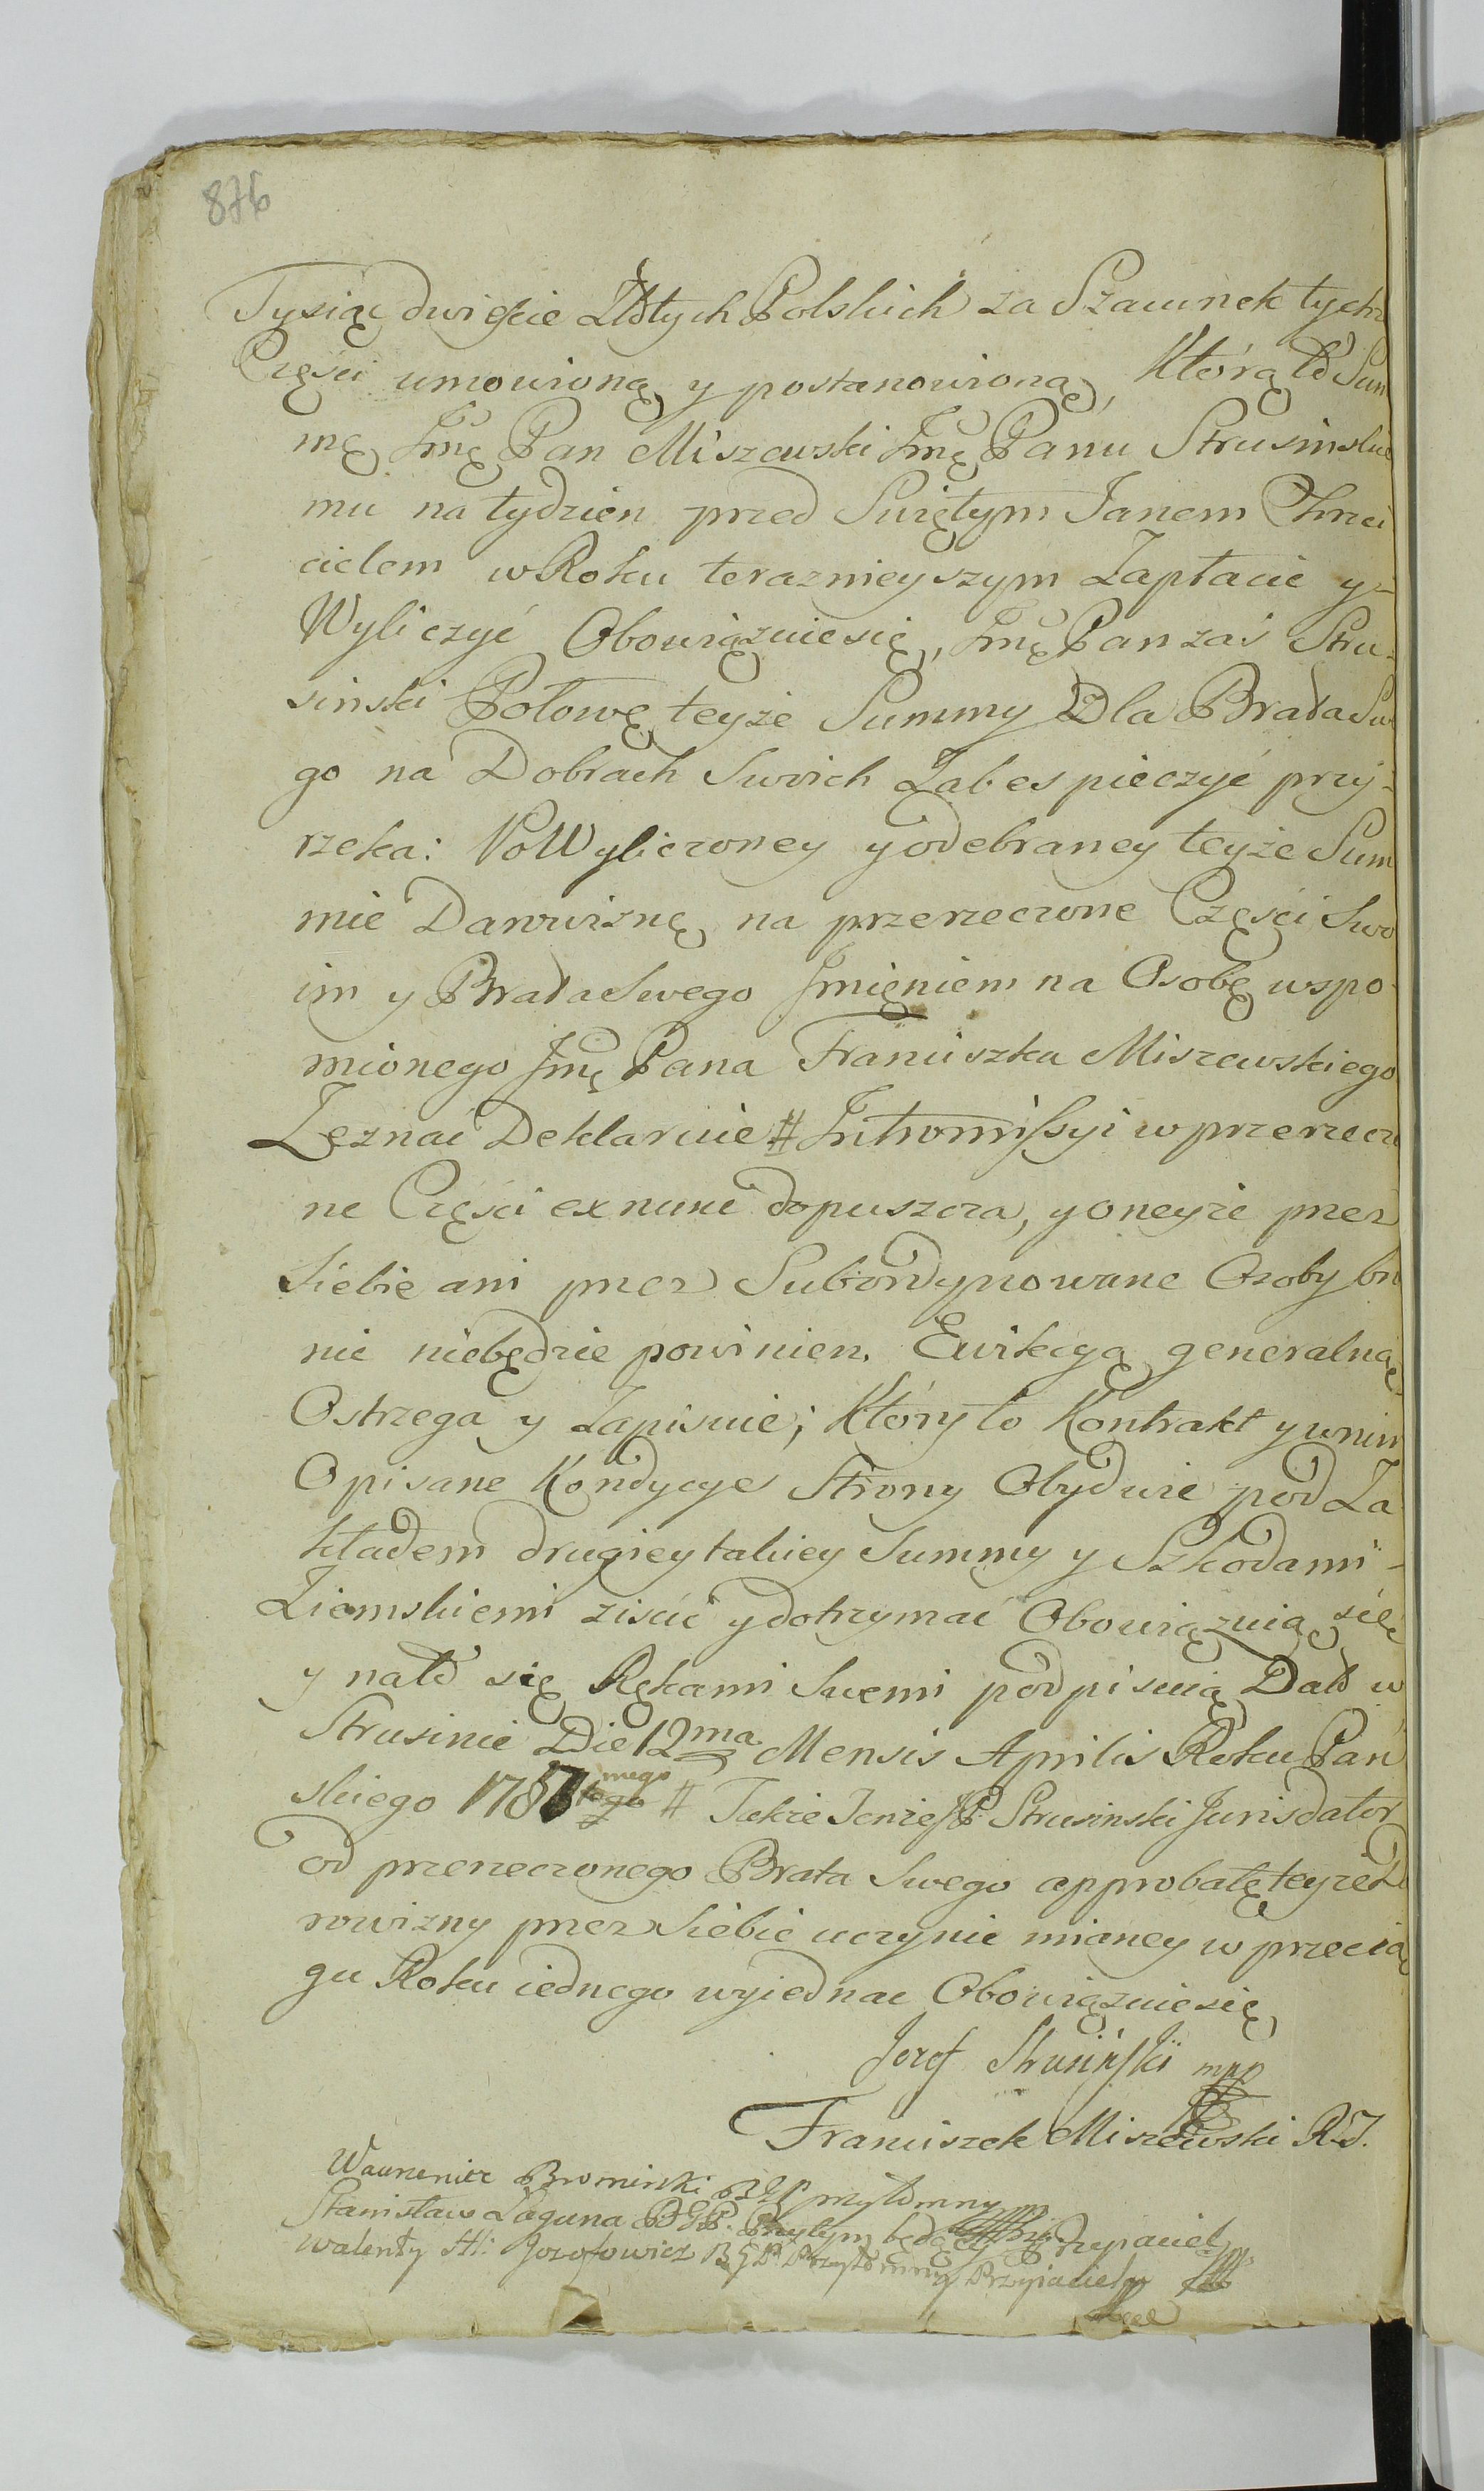 876
Tysiąc dwieście Złotych Polskich za Szacunek tychz
Części umowioną y postanowioną, Którą to Sum
mę Jmę Pan Miszewski Jmę Panu Strusinskie
mu na tydzien przed Swiętym Janem Chrzci
cielem w Roku teraznieyszym Zapłacic y-
Wyliczyć Obowiązuie się, Jmę Pan zaś Stru-
sinski Połowę teyże Summy Dla Brata Swe
go na Dobrach Swoich Zabespieczyć przy-
rzeka: Po Wyliczoney y odebraney teyże Sum
mie Darowiznę na przerzeczone Części Swo
im y Brata Swego Jmięniem na Osobę wspo
mionego Jmę Pana Franciszka Miszewskiego
Zęznać Deklaruie # Intromissyi w przerzeczo
ne Częsci ex nunc dopuszcza, y oneyże przez
Siebie ani przez Subordynowane Osoby bro
nic niebędzie powinien. Ewikcyą generalną
Ostrzega y Zapisuie; Który to Kontrakt y wnim
Opisane Kondycye Strony Obydwie pod Za
kładem drugiey takiey Summy y Szkodami-
Ziemskiemi ziscić y dotrzymać Obowiązuią się
y na to się Rękami Swemi podpisuią Dat w
Strusinie Die 12ma Mensis Aprilis Roku Pań
skiego 1787mego # Takze Jenze JP. Strusinski Jurisdator
od przerzeczonego Brata Swego approbatę teyze Da
rowizny przez Siebie uczynic mianey w przecią
gu Roku iednego wyiednac Obowiązuie się
Jozef Strusiński mpp
Franciszek Miszewski R.Z.
Wawrzeniec Bromirski B Z P przytomny
Stanisław Łaguna B G P. Przytym będący Przyiaciel
Walenty St: Jozofowicz B G P. Przytomny Przyiaciel